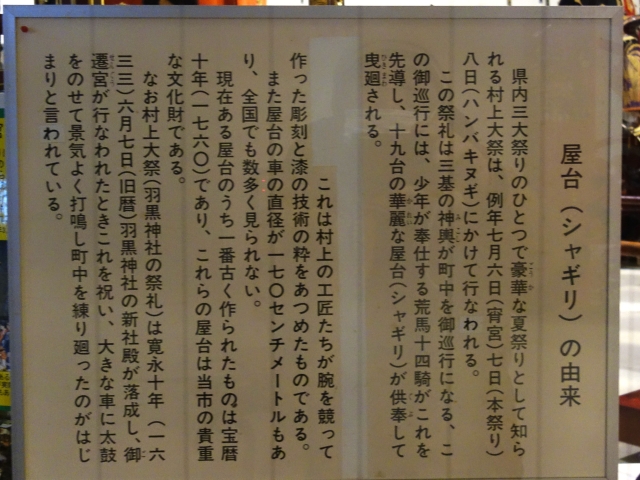 屋台（シャギリ）の由来
県内三大祭りのひとつで豪華な夏祭りとして知ら
れる村上大祭は、例年七月六日（宵宮）七日（本祭り）
八日（ハンバキヌギ）にかけて行なわれる。
この祭礼は三基の神輿が町中を御巡行になる、こ
の御巡行には、少年が奉仕する荒馬十四騎がこれを
先導し、十九台の華麗な屋台（シャギリ）が供奉して
曳廻される。
これは村上の工匠たちが腕を競って
作った彫刻と漆の技術の粋をあつめたものである。
また屋台の車の直径が一七〇センチメートルもあ
り、全国でも数多く見られない。
現在ある屋台のうち一番古く作られたものは宝暦
十年（一七六〇）であり、これらの屋台は当市の貴重
な文化財である。
なお村上大祭（羽黒神社の祭礼）は寛永十年（一六
三三）六月七日（旧暦）羽黒神社の新社殿が落成し、御
遷宮が行なわれたときこれを祝い、大きな車に太鼓
をのせて景気よく打鳴し町中を練り廻ったのがはじ
まりと言われている。